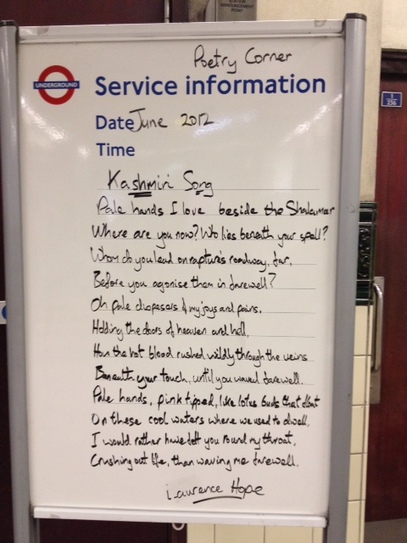 Poetry Corner
UNDERGROUND
Service information
Date June 2012
Time
Kashmiri Song
Pale hands I love beside the Shalamar
Where are you now? Who lies beneath your spell?
Whom do you lead on raptures roadway, far,
Before you agonise them in farewell?
Oh pale dispensers of my joys and pains,
Holding the doors of heaven and hell,
How the hot blood rushed wildly through the veins
Beneath your touch, until you waved farewell.
Pale hands, pink tipped, like lotus buds that float
On these cool waters where we used to dwell,
I would rather have felt you round my throat,
Crushing out life, than waving me farewell.
Laurence Hope